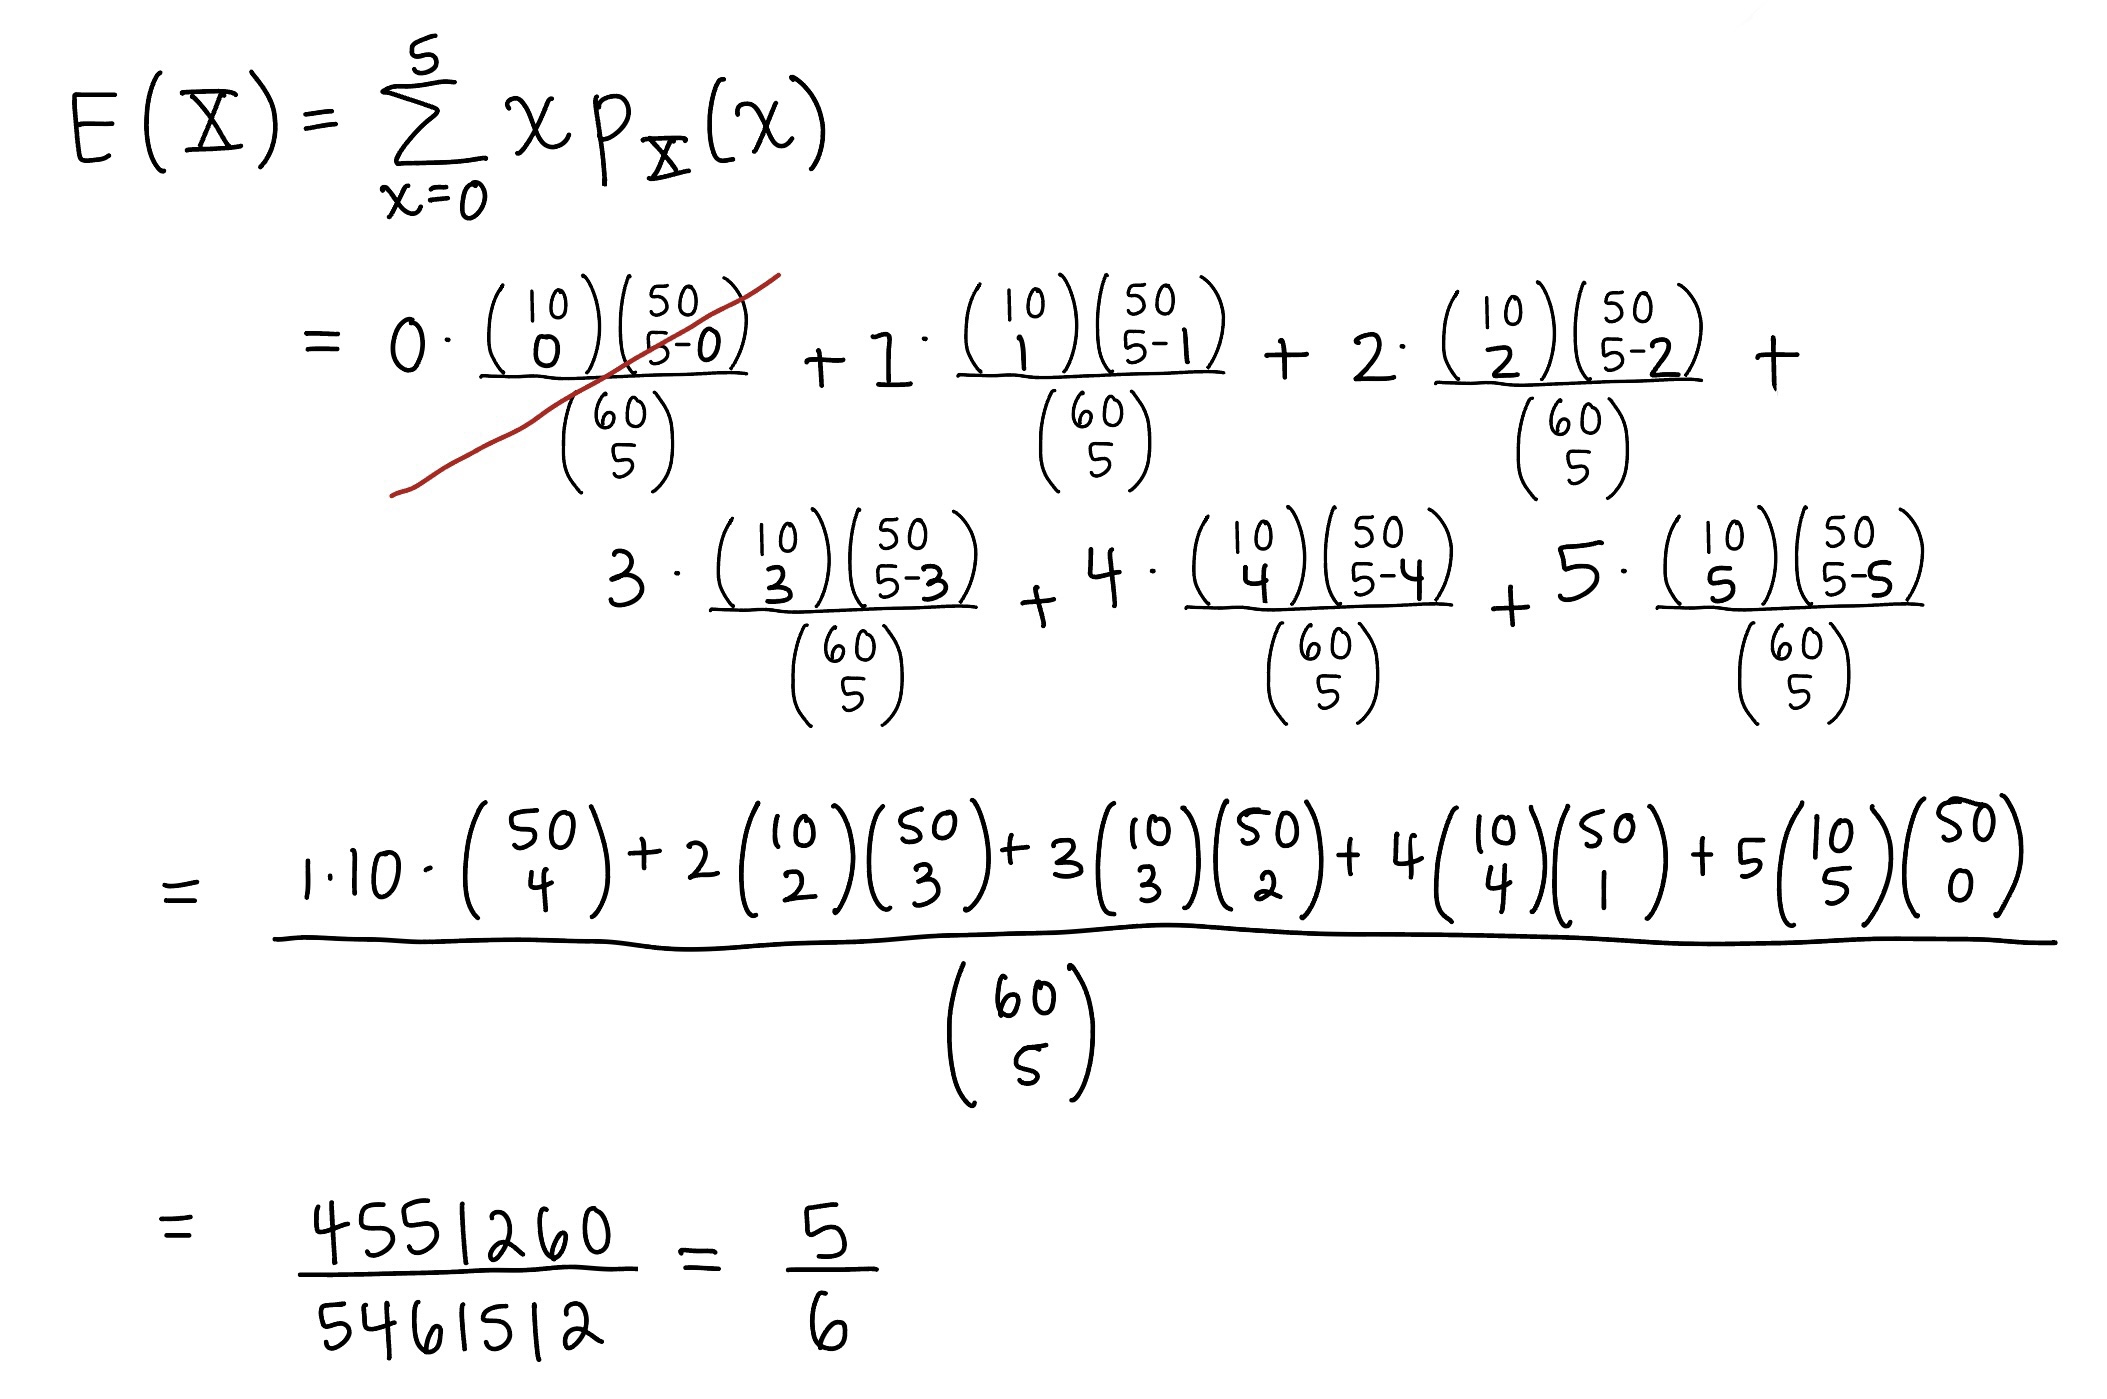 E(X) = \sum_{x=0}^{5} x p_X(x)
= 0 · \frac{\binom{10}{0}\binom{50}{5-0}}{\binom{60}{5}} + 1 · \frac{\binom{10}{1}\binom{50}{5-1}}{\binom{60}{5}} + 2 · \frac{\binom{10}{2}\binom{50}{5-2}}{\binom{60}{5}} +
3 · \frac{\binom{10}{3}\binom{50}{5-3}}{\binom{60}{5}} + 4 · \frac{\binom{10}{4}\binom{50}{5-4}}{\binom{60}{5}} + 5 · \frac{\binom{10}{5}\binom{50}{5-5}}{\binom{60}{5}}
= \frac{1·10·\binom{50}{4} + 2\binom{10}{2}\binom{50}{3} + 3\binom{10}{3}\binom{50}{2} + 4\binom{10}{4}\binom{50}{1} + 5\binom{10}{5}\binom{50}{0}}{\binom{60}{5}}
= \frac{4551260}{5461512} = \frac{5}{6}